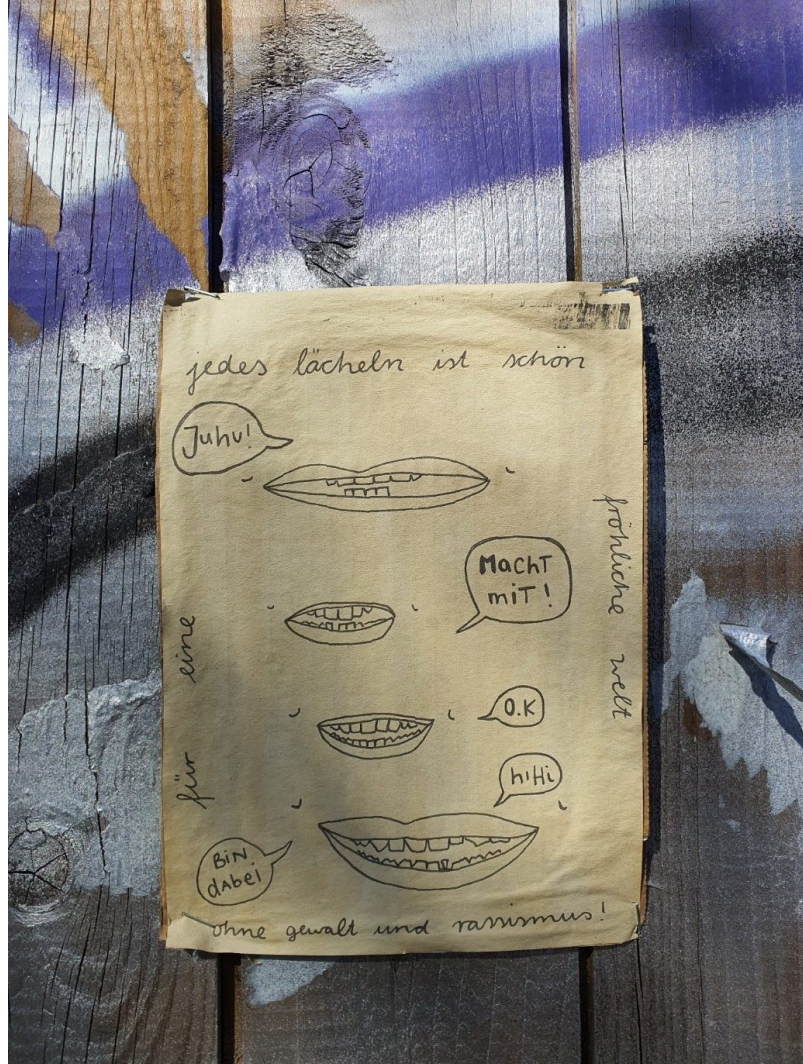 jedes lächeln ist schön
Juhu!
Macht
mit!
O.K
hiHi
BiN
dabei
für eine
fröhliche welt
ohne gewalt und rassismus!